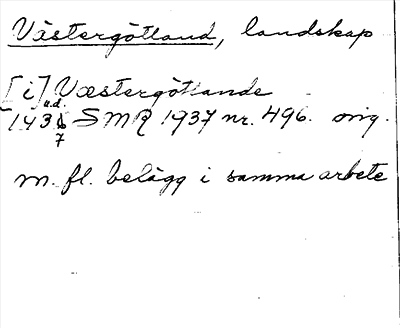 Västergötland, landskap
[i] Væstergøtlande
u.d.
1436 SMR 1937 nr. 496. orig.
7
m. fl. belägg i samma arbete